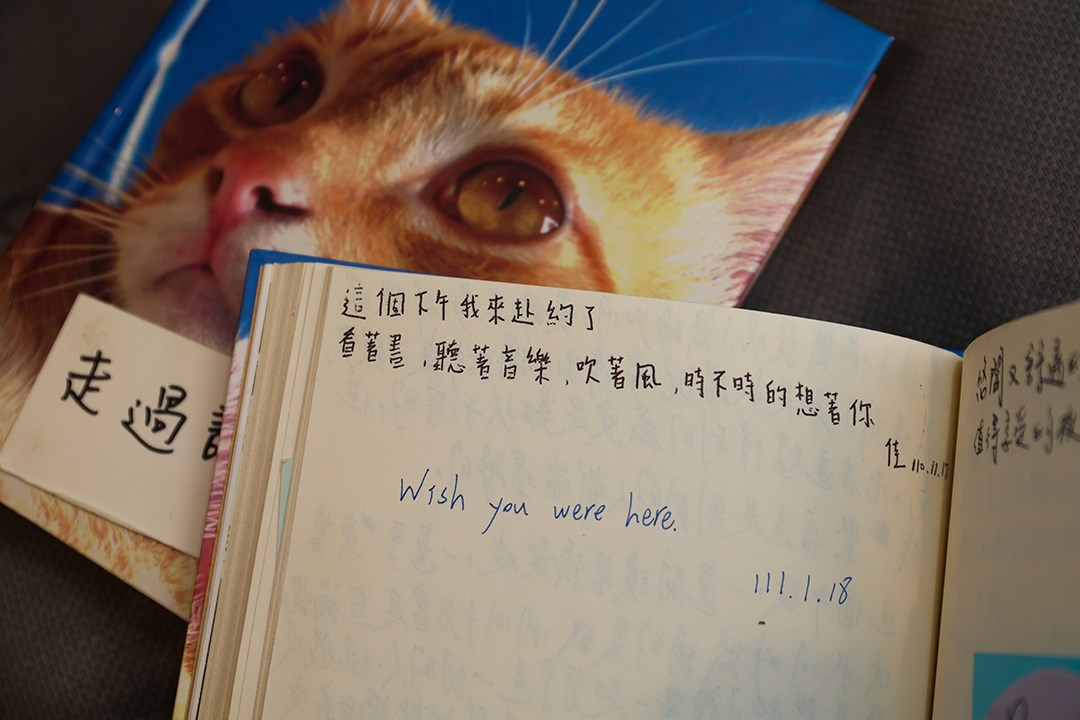 走過
這個下午我來赴約了
看著畫,聽著音樂,吹著風,時不時的想著你
佳 110.11.17
Wish you were here.
111.1.18
悠閒又舒適的
值得享受的